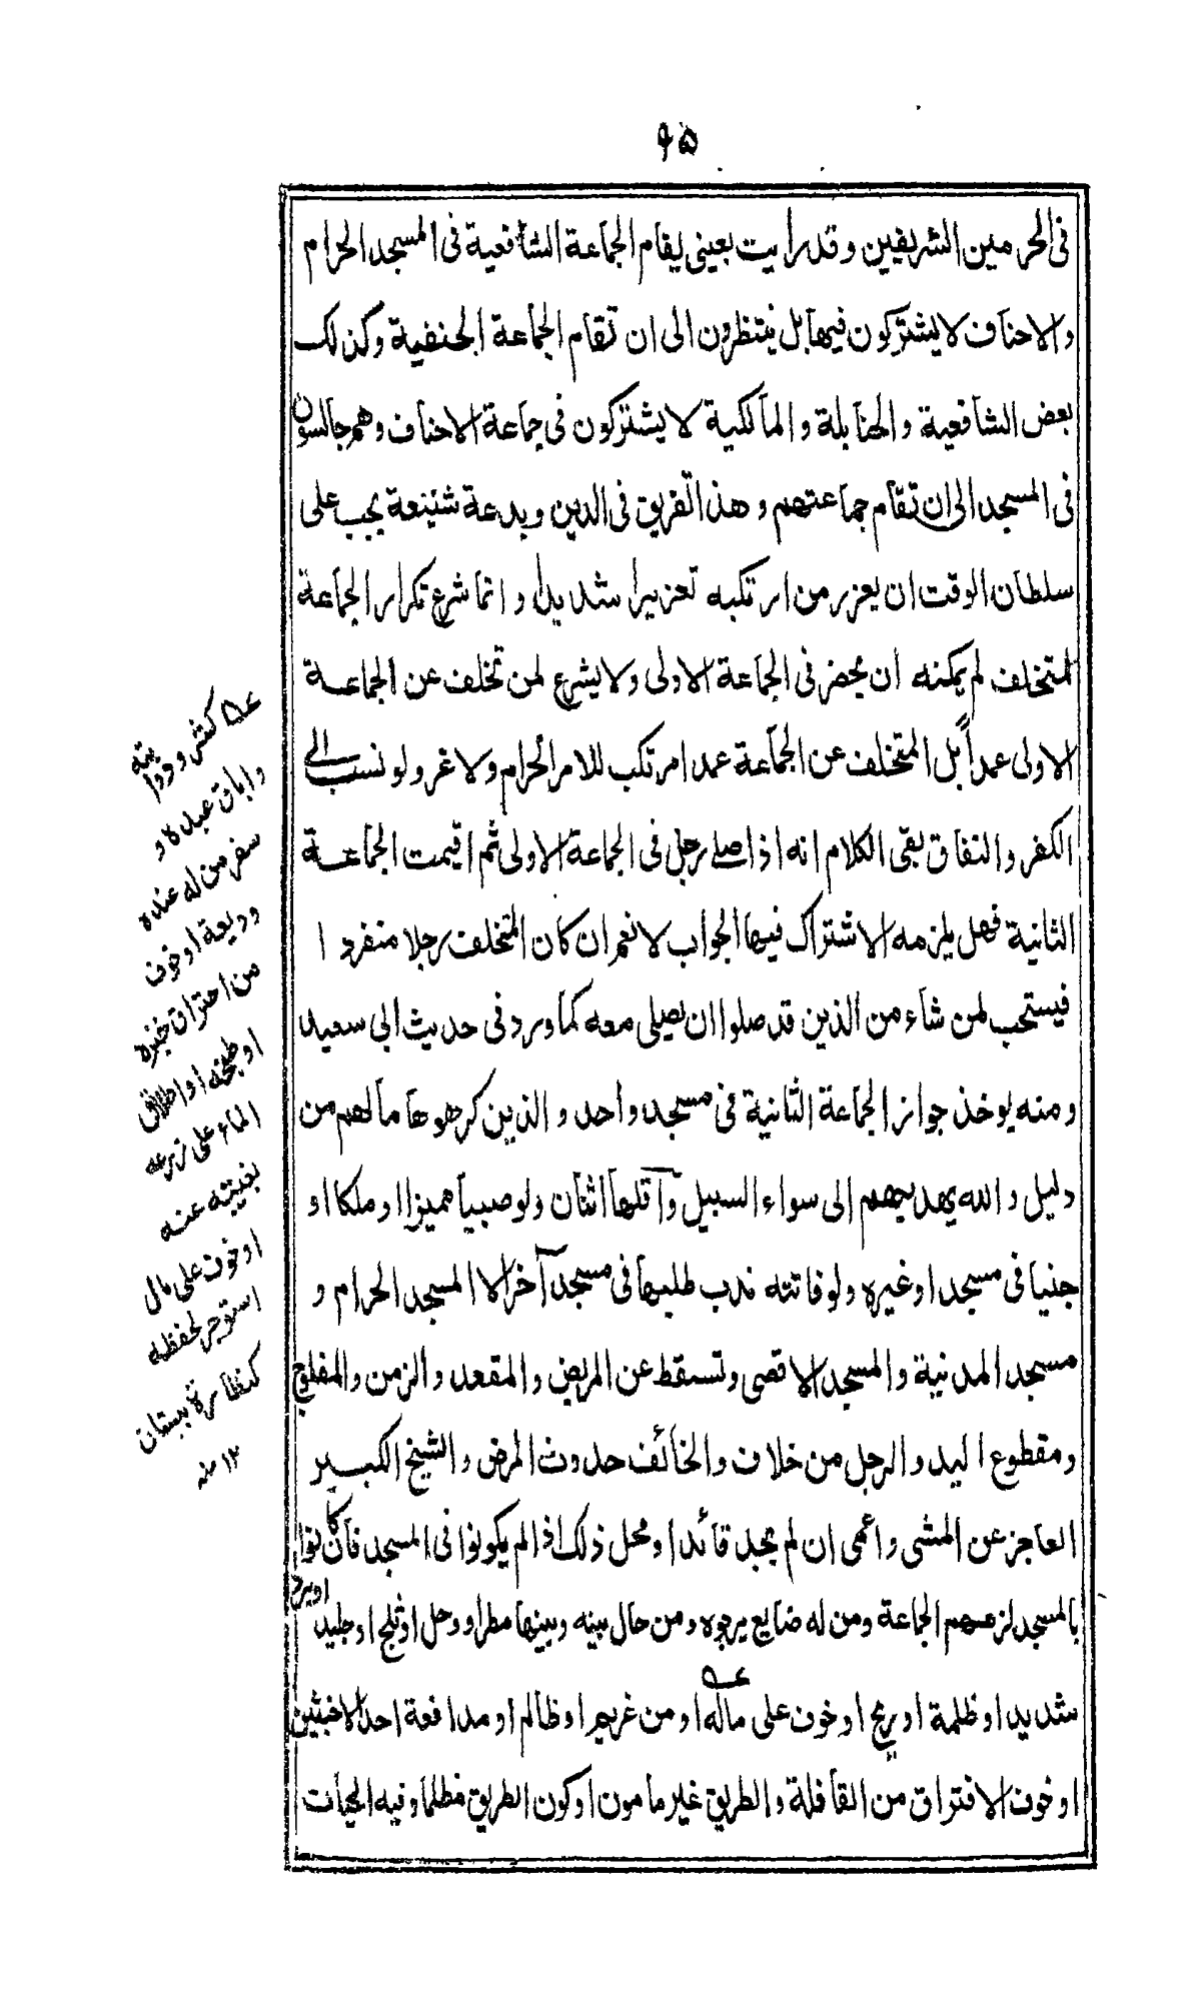 ۹۵
فى الحرمين الشريفين وقد رايت بعينى يقام الجماعة الشافعية فى المسجد الحرام
والاحناف لا يشتركون فيها بل ينتظرون الى ان تقام الجماعة الحنفية وكذلك
بعض الشافعية والحنابلة والمالكية لا يشتركون فى جماعة الاحناف وهم جالسون
فى المسجد الى ان تقام جماعتهم وهذا تفريق فى الدين وبدعة شنيعة يجب على
سلطان الوقت ان يعزر من ارتكبه تعزيرا شديدا وانما شرع تكرار الجماعة
لمتخلف لم يمكنه ان يحضر فى الجماعة الاولى ولا يشرع لمن تخلف عن الجماعة
الاولى عمداً بل المتخلف عن الجماعة عمدا مرتكب للامر الحرام ولا غرو لو نسب الى
الكفر والنفاق بقى الكلام انه اذا صلى رجل فى الجماعة الاولى ثم اقيمت الجماعة
الثانية فهل يلزمه الاشتراك فيها الجواب لا نعم ان كان المتخلف رجلا منفردا
فيستحب لمن شاء من الذين قد صلوا ان يصلى معه كما ورد فى حديث ابى سعيد
ومنه يوخذ جواز الجماعة الثانية فى مسجد واحد والذين كرهوها مالهم من
دليل والله يهديهم الى سواء السبيل واقلها اثنان ولو صبيا مميزا او ملكا او
جنيا فى مسجد او غيره ولو فاتته ندب طلبها فى مسجد آخر الا المسجد الحرام و
مسجد المدينة والمسجد الاقصى وتسقط عن المريض والمقعد والزمن والمفلوج
ومقطوع اليد والرجل من خلاف والخائف حدوث المرض والشيخ الكبير
العاجز عن المشى واعمى ان لم يجد قائدا ومحل ذلك اذا لم يكونوا فى المسجد فان كانوا
بالمسجد لزمهم الجماعة ومن له ضايع يرجوه ومن حال بينه وبينها مطر او وحل او ثلج او جليد او برد
شديد او ظلمة او ريح او خوف على ماله عه او من غريم او ظالم او مدافعة احد الاخبثين
او خوف الافتراق من القافلة والطريق غير مامون او كون الطريق مظلما وفيه الحيات
عه كنش ودوابته
واباق عبده و
سفر من له عنده
وديعة او خوف
من احتراق خبزه
او طبخه او اطلاق
الماء على زرعه
بغيبته عنه
او خوف على مال
استوجر لحفظه
كنظارة بستان
۱۲ منه